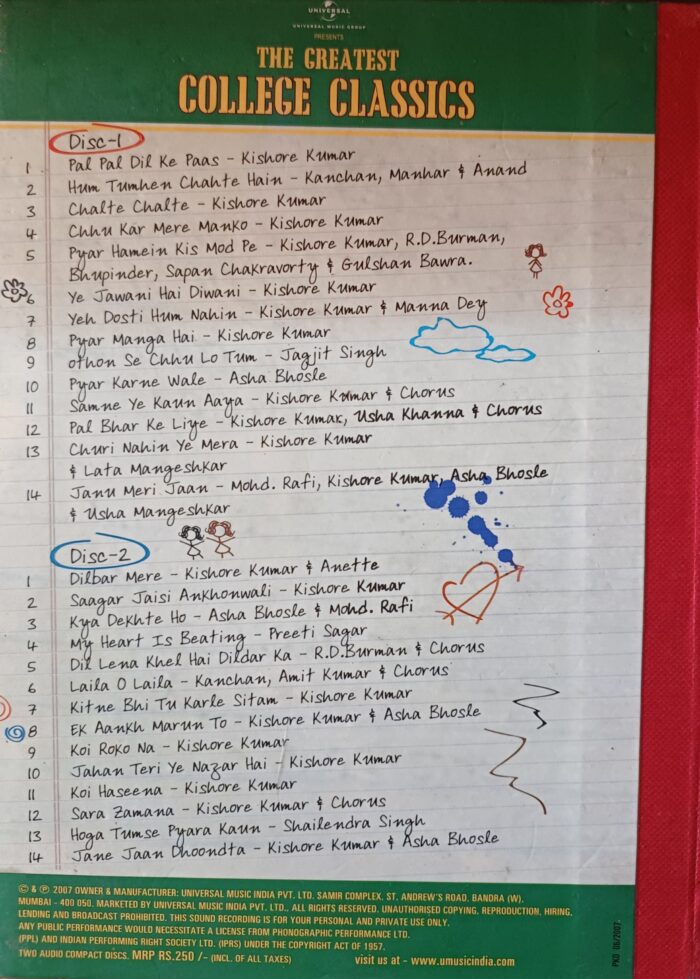 UNIVERSAL
UNIVERSAL MUSIC GROUP
PRESENTS
THE GREATEST
COLLEGE CLASSICS
Disc-1
1 Pal Pal Dil Ke Paas - Kishore Kumar
2 Hum Tumhen Chahte Hain - Kanchan, Manhar & Anand
3 Chalte Chalte - Kishore Kumar
4 Chhu Kar Mere Manko - Kishore Kumar
5 Pyar Hamein Kis Mod Pe - Kishore Kumar, R.D.Burman,
Bhupinder, Sapan Chakravorty & Gulshan Bawra.
6 Ye Jawani Hai Diwani - Kishore Kumar
7 Yeh Dosti Hum Nahin - Kishore Kumar & Manna Dey
8 Pyar Manga Hai - Kishore Kumar
9 Othon Se Chhu Lo Tum - Jagjit Singh
10 Pyar Karne Wale - Asha Bhosle
11 Samne Ye Kaun Aaya - Kishore Kumar & Chorus
12 Pal Bhar Ke Liye - Kishore Kumar, Usha Khanna & Chorus
13 Churi Nahin Ye Mera - Kishore Kumar
& Lata Mangeshkar
14 Janu Meri Jaan - Mohd. Rafi, Kishore Kumar, Asha Bhosle
& Usha Mangeshkar
Disc-2
1 Dilbar Mere - Kishore Kumar & Anette
2 Saagar Jaisi Ankhonwali - Kishore Kumar
3 Kya Dekhte Ho - Asha Bhosle & Mohd. Rafi
4 My Heart Is Beating - Preeti Sagar
5 Dil Lena Khel Hai Dildar Ka - R.D.Burman & Chorus
6 Laila O Laila - Kanchan, Amit Kumar & Chorus
7 Kitne Bhi Tu Karle Sitam - Kishore Kumar
8 Ek Aankh Marun To - Kishore Kumar & Asha Bhosle
9 Koi Roko Na - Kishore Kumar
10 Jahan Teri Ye Nazar Hai - Kishore Kumar
11 Koi Haseena - Kishore Kumar
12 Sara Zamana - Kishore Kumar & Chorus
13 Hoga Tumse Pyara Kaun - Shailendra Singh
14 Jane Jaan Dhoondta - Kishore Kumar & Asha Bhosle
© & ℗ 2007 OWNER & MANUFACTURER: UNIVERSAL MUSIC INDIA PVT. LTD. SAMIR COMPLEX, ST. ANDREW'S ROAD, BANDRA (W),
MUMBAI - 400 050. MARKETED BY UNIVERSAL MUSIC INDIA PVT. LTD., ALL RIGHTS RESERVED. UNAUTHORISED COPYING, REPRODUCTION, HIRING,
LENDING AND BROADCAST PROHIBITED. THIS SOUND RECORDING IS FOR YOUR PERSONAL AND PRIVATE USE ONLY.
ANY PUBLIC PERFORMANCE WOULD NECESSITATE A LICENSE FROM PHONOGRAPHIC PERFORMANCE LTD.
(PPL) AND INDIAN PERFORMING RIGHT SOCIETY LTD. (IPRS) UNDER THE COPYRIGHT ACT OF 1957.
TWO AUDIO COMPACT DISCS. MRP RS.250 /- (INCL. OF ALL TAXES) visit us at - www.umusicindia.com
PKD 06/2007.